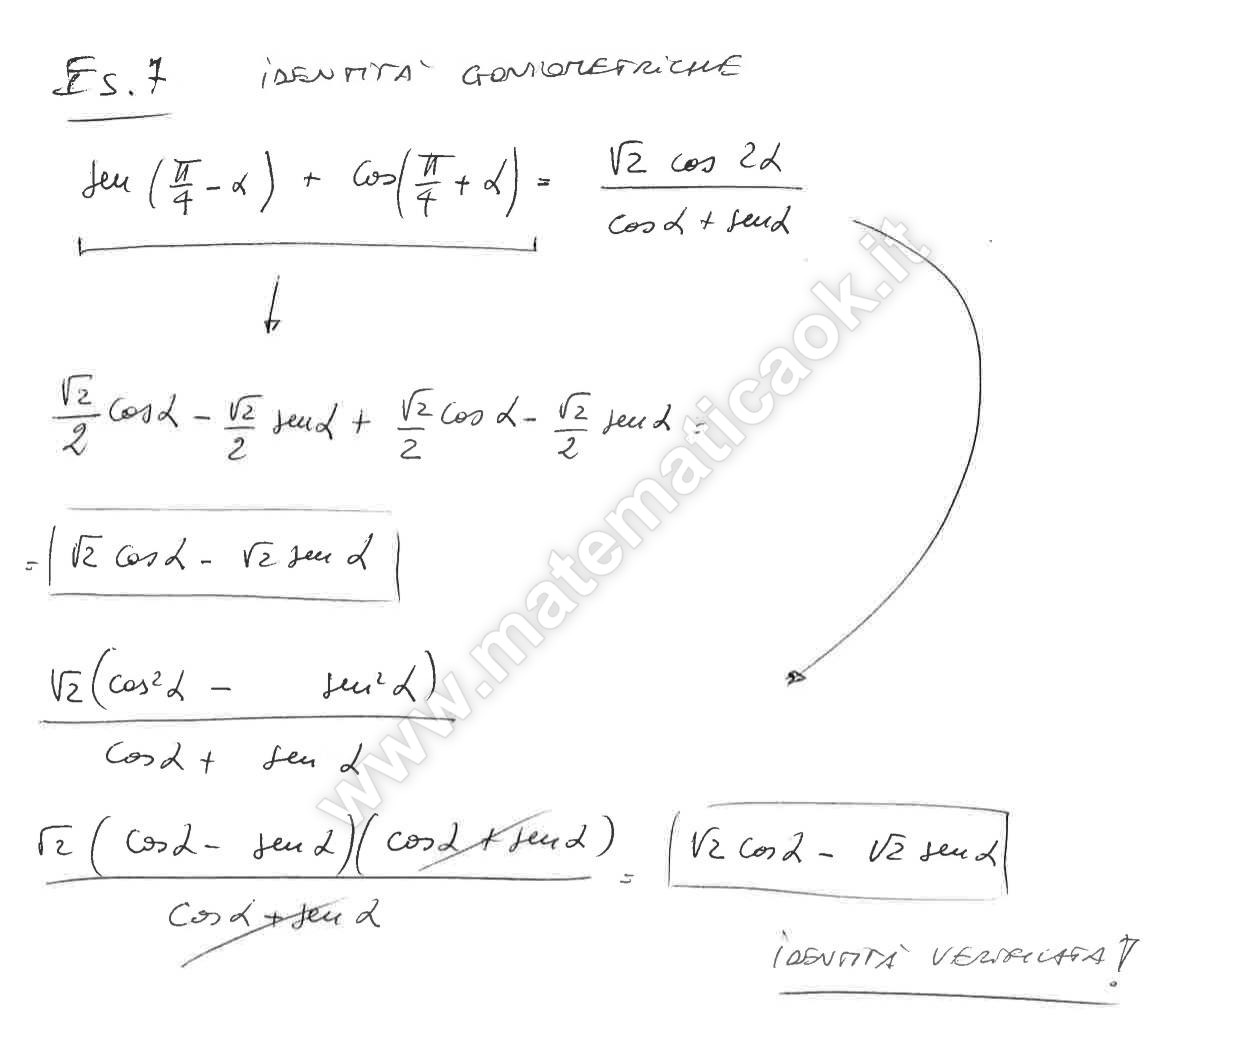 Es. 7 IDENTITÀ GONIOMETRICHE
sen (π/4 - α) + cos(π/4 + α) = √2 cos 2α / cos α + sen α
√2/2 cos α - √2/2 sen α + √2/2 cos α - √2/2 sen α =
= √2 cos α - √2 sen α
√2 (cos² α - sen² α) / cos α + sen α
√2 (cos α - sen α)(cos α + sen α) / cos α + sen α = √2 cos α - √2 sen α
IDENTITÀ VERIFICATA!
www.matematicaok.it